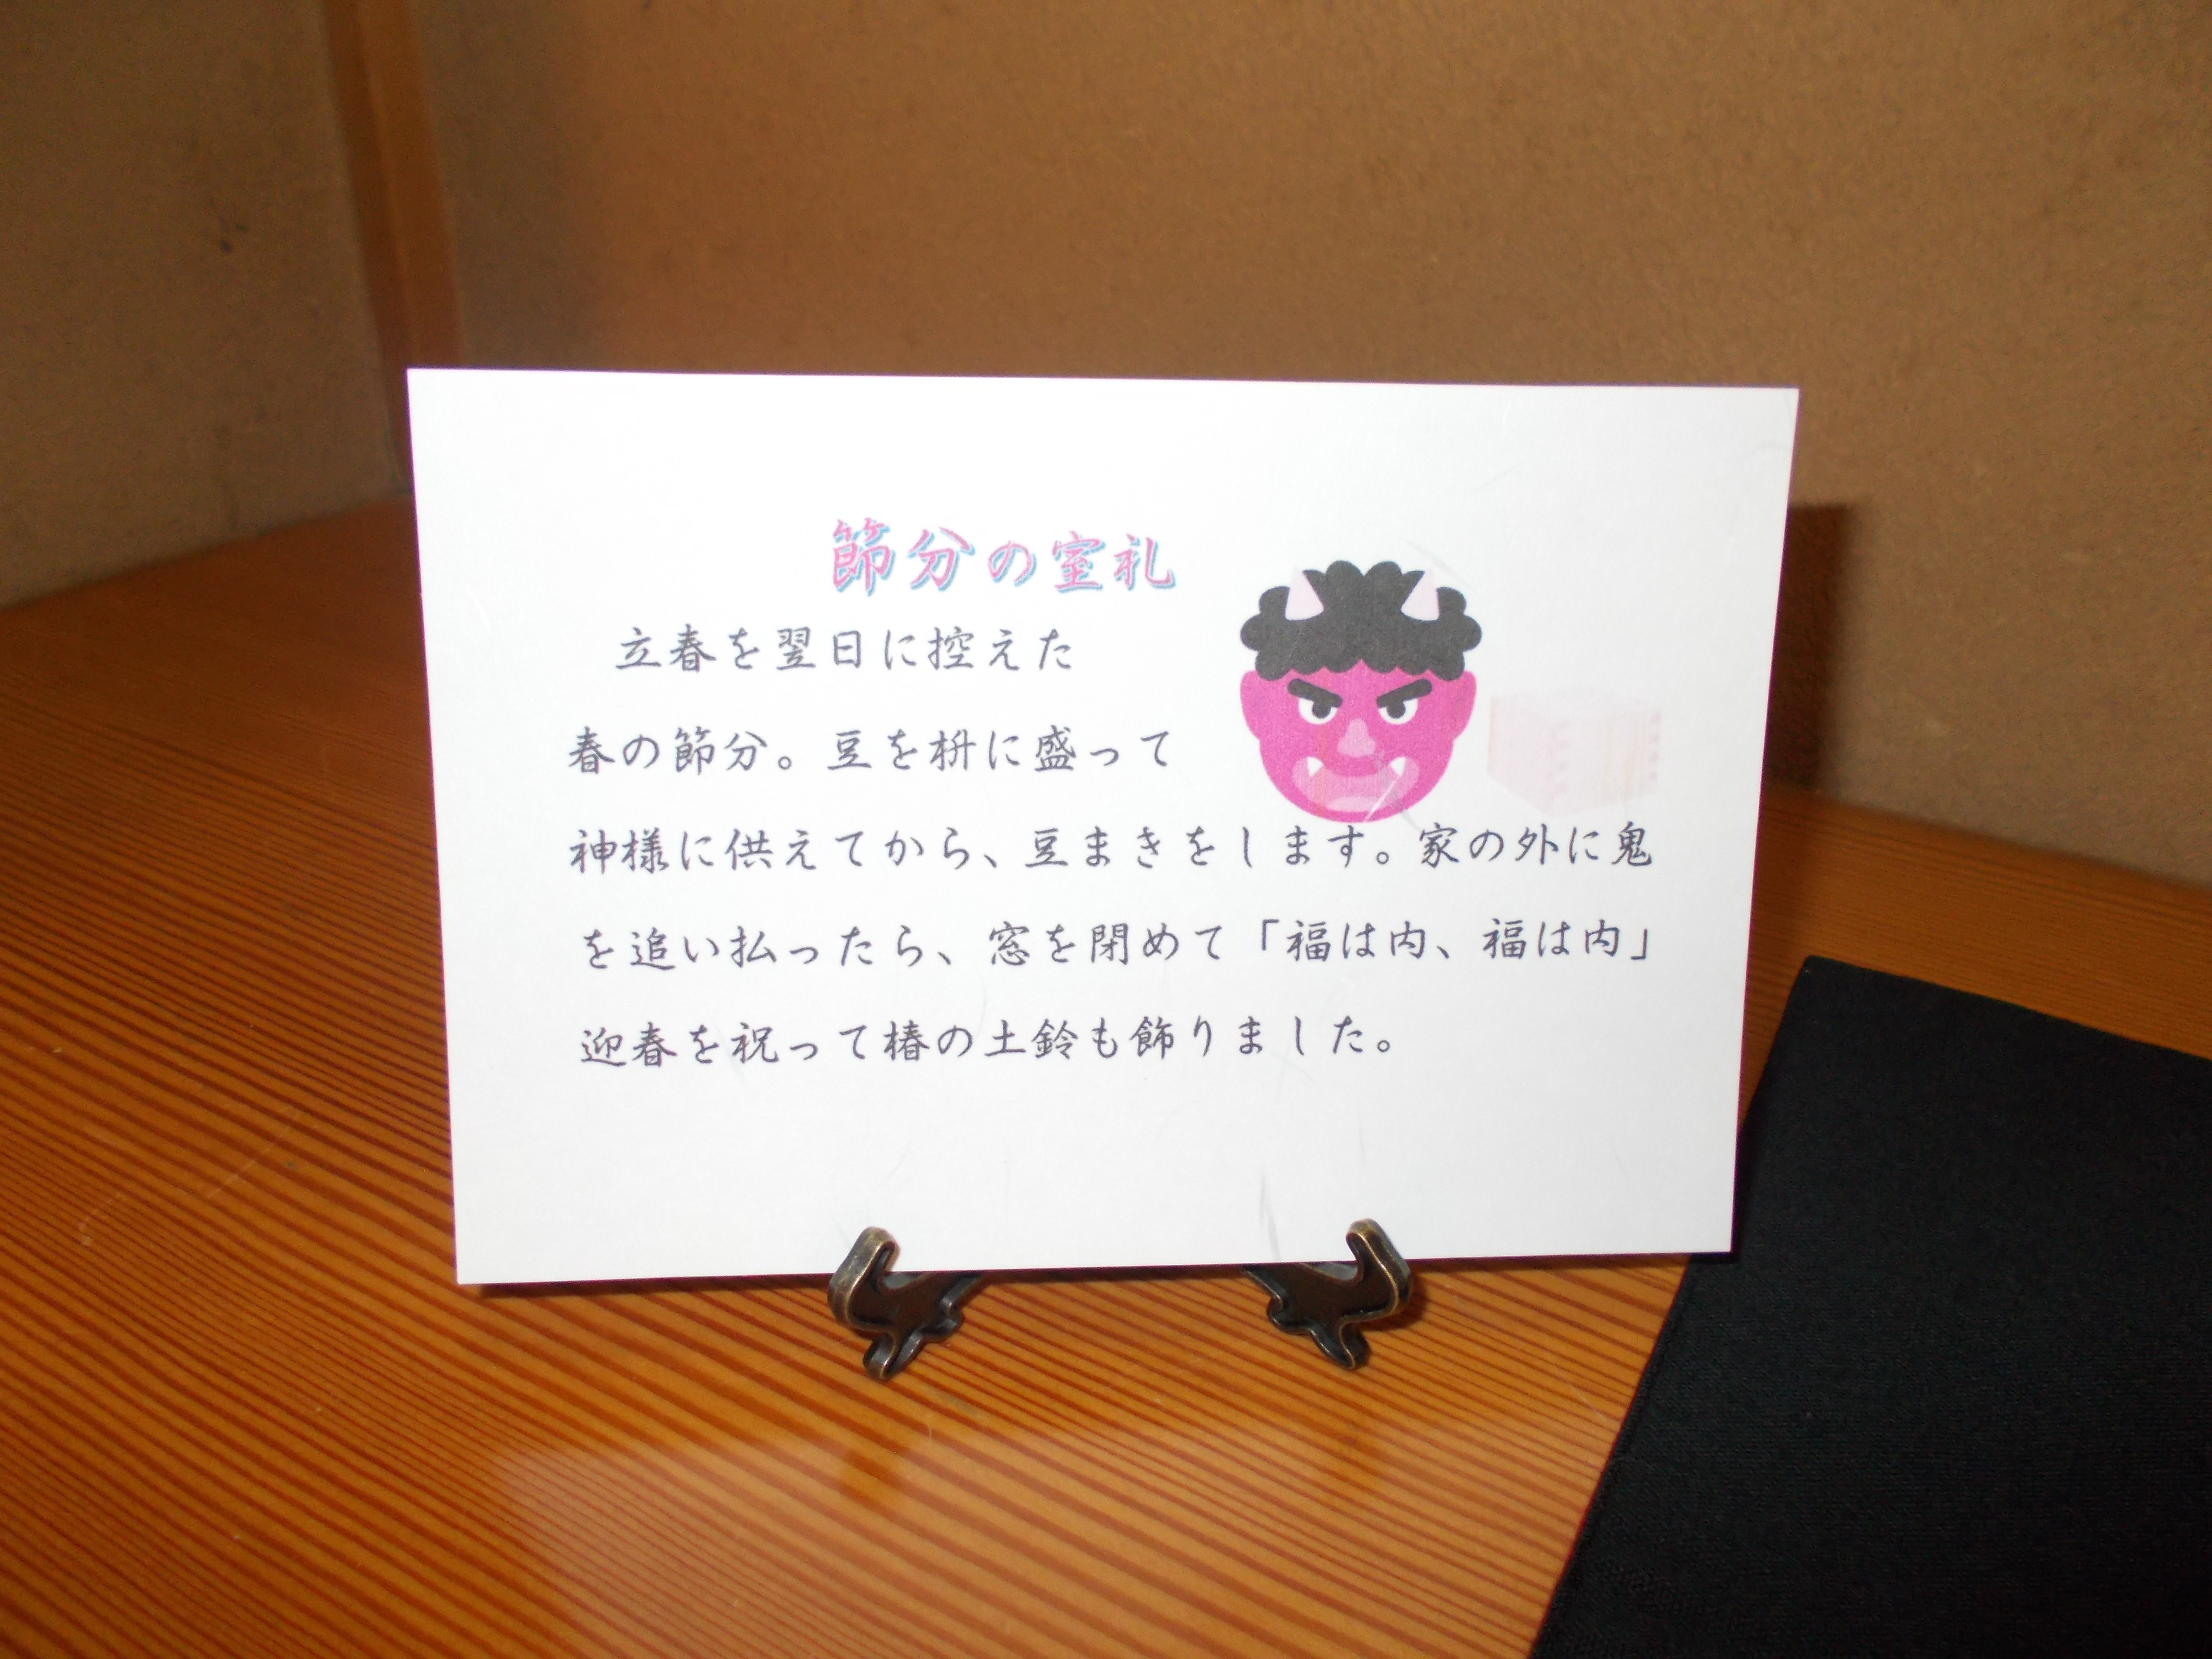 節分の室礼
立春を翌日に控えた
春の節分。豆を枡に盛って
神様に供えてから、豆まきをします。家の外に鬼
を追い払ったら、窓を閉めて「福は内、福は内」
迎春を祝って椿の土鈴も飾りました。